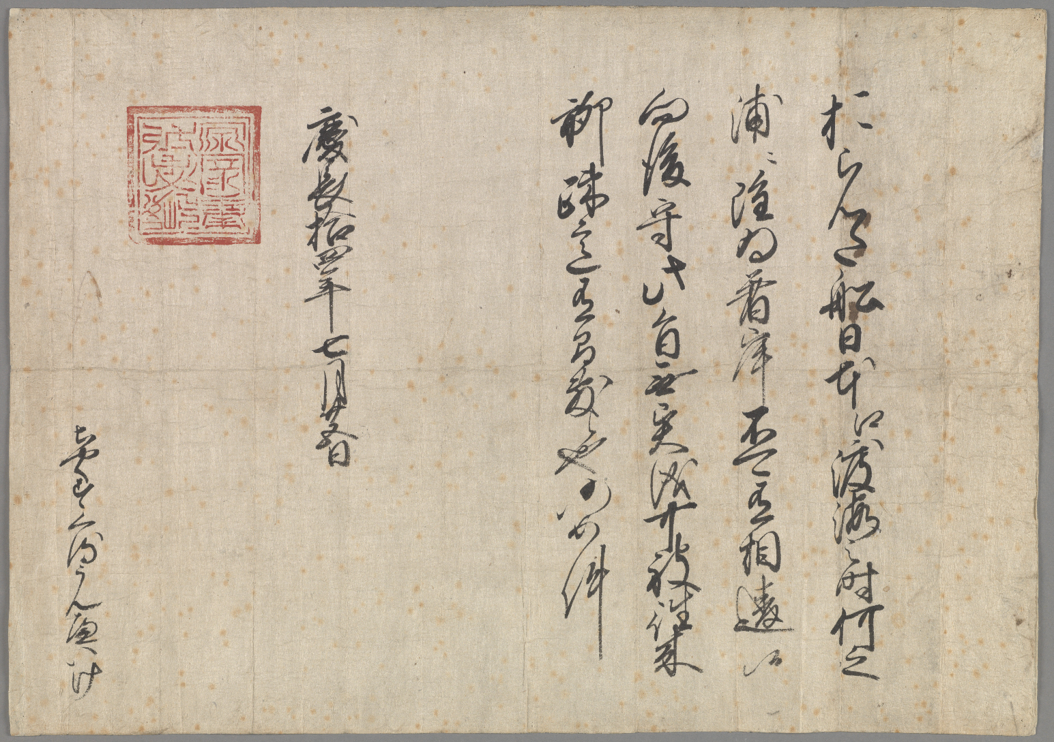 おらんた船日本江渡海之時何之
浦ニ雖為着岸不可有相違候
向後守此旨無異儀可被往来
聊疎意有間敷也仍如件
慶長拾四年七月廿五日
ちやくすくるうんへいけ
源家康忠恕